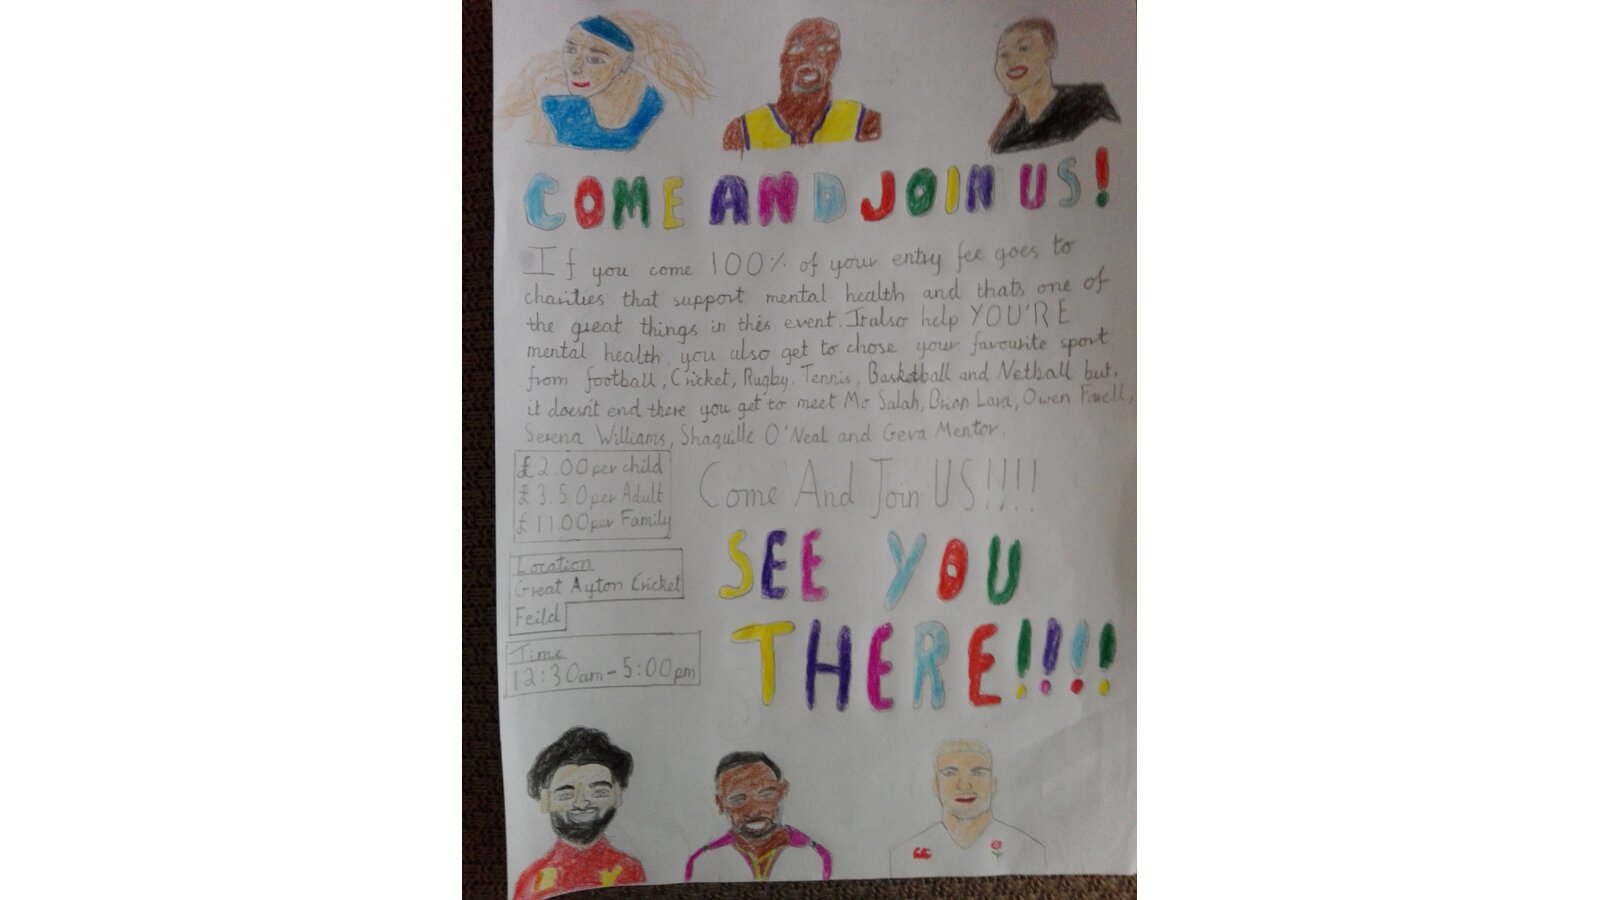 COME AND JOIN US!
If you come 100% of your entry fee goes to
charities that support mental health and thats one of
the great things in this event. It also help YOU'RE
mental health, you also get to chose your favourite sport
from football, Cricket, Rugby, Tennis, Basketball and Netball but.
it doesn't end there you get to meet Mo Salah, Brian Lara, Owen Farell,
Serena Williams, Shaquille O'Neal and Geva Mentor.
£2.00 per child
£3.50 per Adult
£11.00 per Family
Come And Join US!!!!
SEE YOU
THERE!!!!
Location
Great Ayton Cricket
Feild
Time
12:30am - 5:00pm